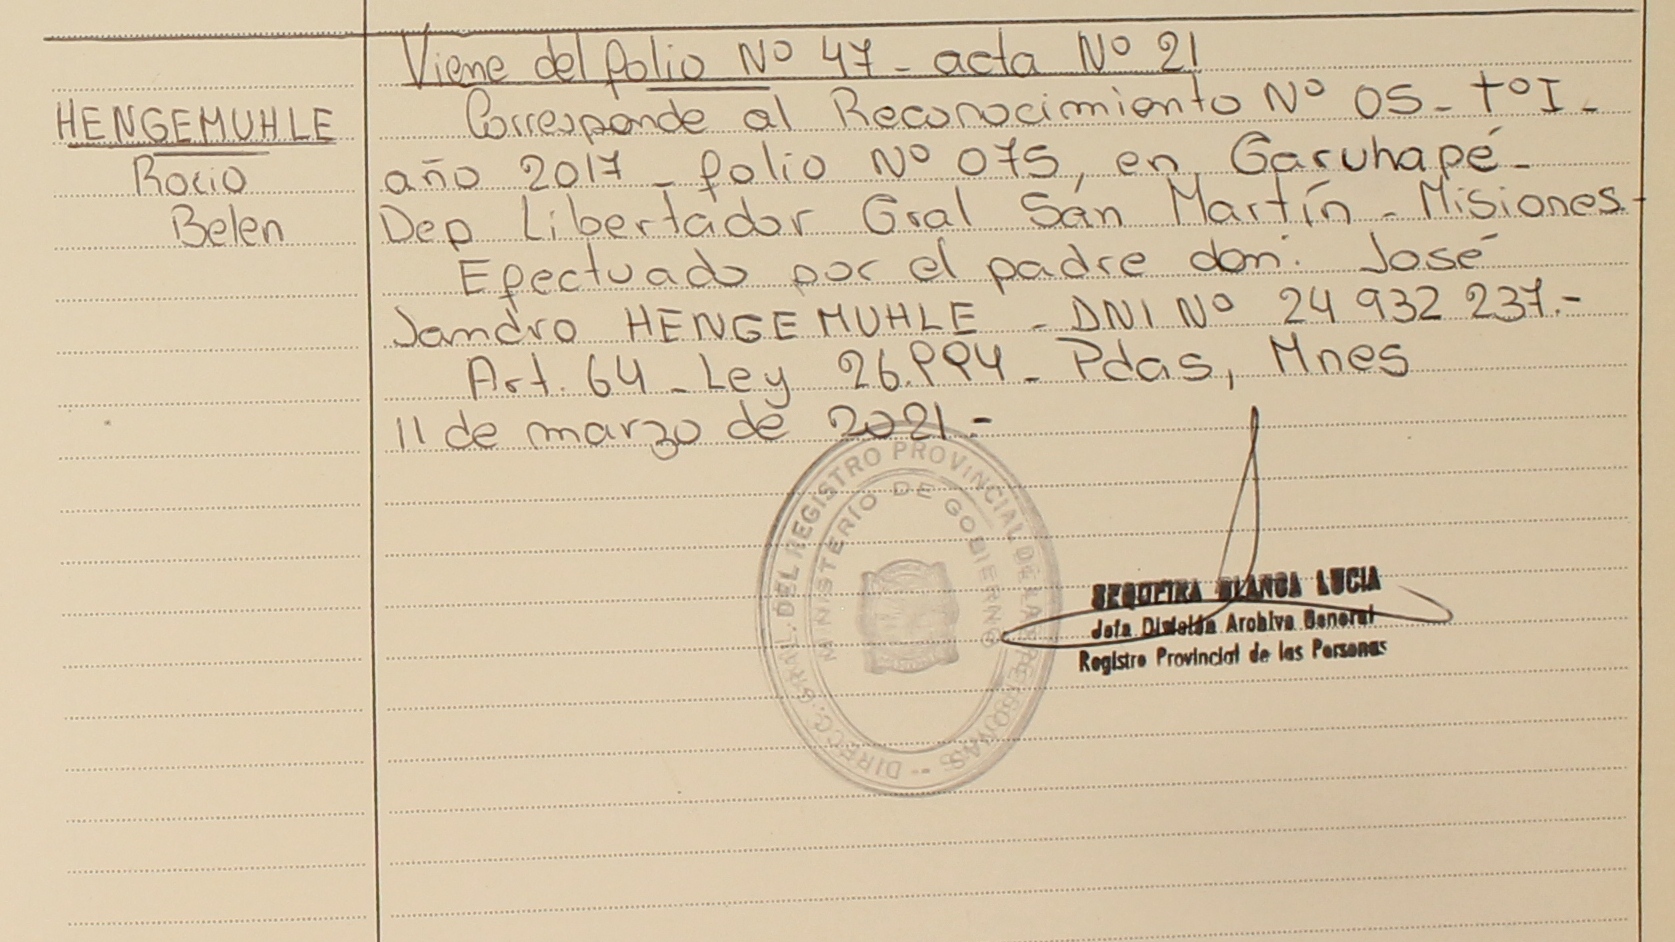 Viene del folio Nº 47 - acta Nº 21
HENGEMUHLE
Rocio
Belen
Corresponde al Reconocimiento Nº 05 - tº I -
año 2017 - folio Nº 075, en Garuhapé -
Dep Libertador Gral San Martín - Misiones -
Efectuado por el padre don: José
Sandro HENGEMUHLE - DNI Nº 24 932 237.-
Art. 64 - Ley 26.994 - Pdas, Mnes
11 de marzo de 2021.-
DIRECC. GRAL. DEL REGISTRO PROVINCIAL DE LAS PERSONAS
MINISTERIO DE GOBIERNO
SEQUEIRA BLANCA LUCIA
Jefa División Archivo General
Registro Provincial de las Personas